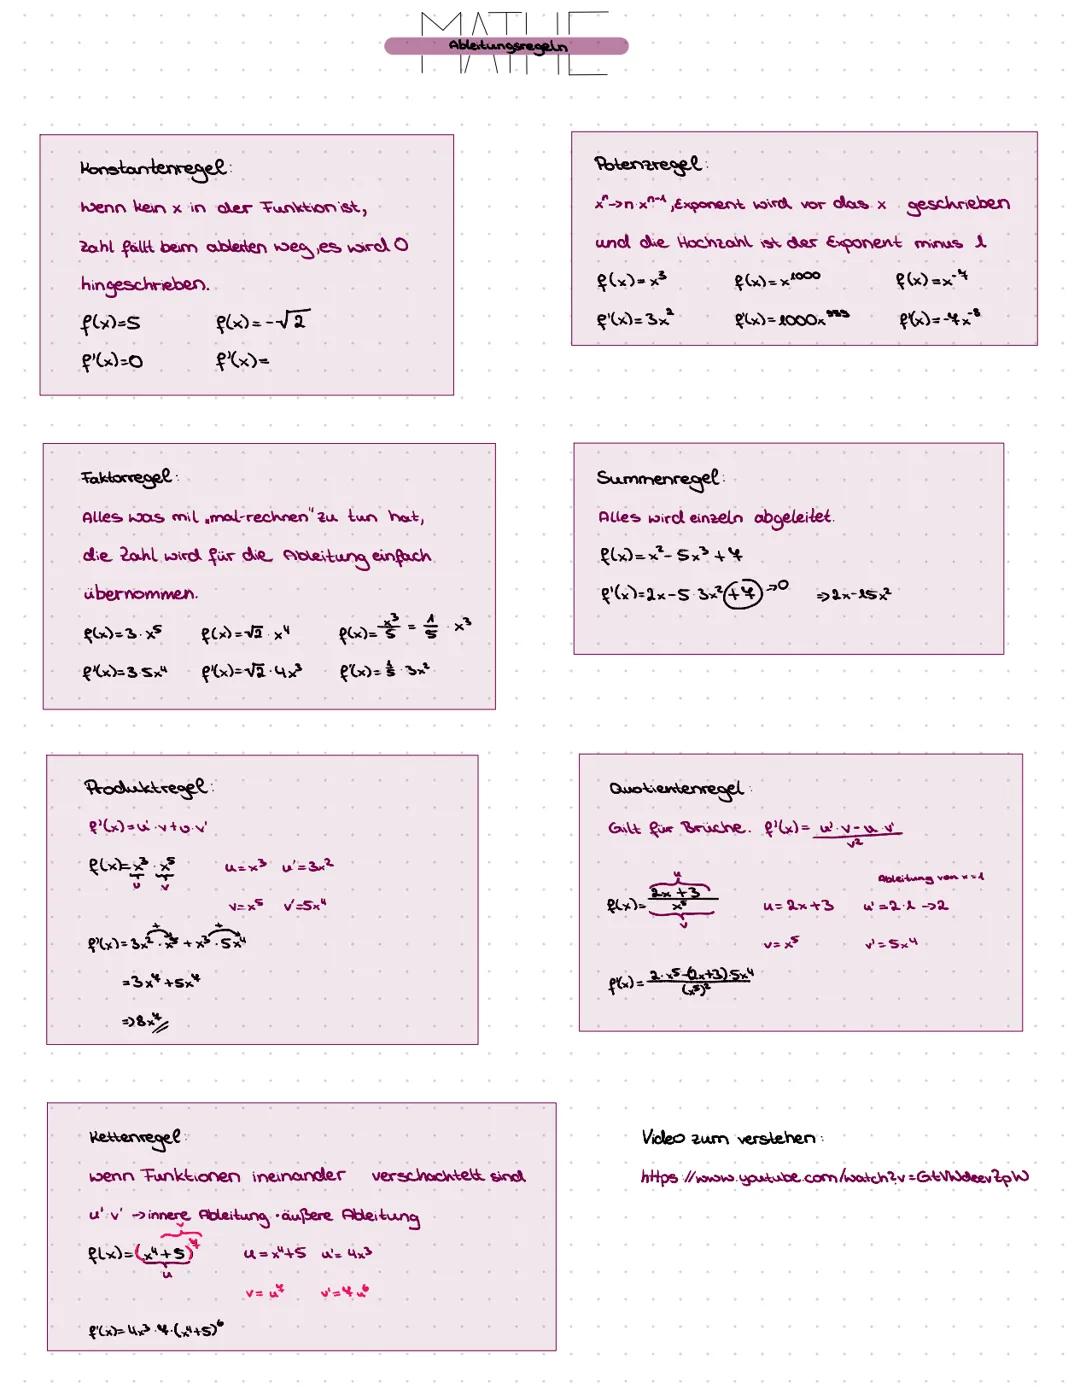 MATHE
Ableitungsregeln
Konstantenregel:
Wenn kein x in der Funktion ist,
Zahl fällt beim ableiten weg, es wird 0
hingeschrieben.
f(x)=5 f(x)=-√2
f'(x)=0 f'(x)=
Potenzregel:
xⁿ->n·xⁿ⁻¹, Exponent wird vor das x geschrieben
und die Hochzahl ist der Exponent minus 1
f(x)=x³ f(x)=x¹⁰⁰⁰ f(x)=x⁻⁷
f'(x)=3x² f'(x)=1000x⁹⁹⁹ f'(x)=-7x⁻⁸
Faktorregel:
Alles was mil „mal-rechnen" zu tun hat,
die Zahl wird für die Ableitung einfach
übernommen.
f(x)=3·x⁵ f(x)=√2·x⁴ f(x)=x³/5 = 1/5 · x³
f'(x)=3·5x⁴ f'(x)=√2·4x³ f'(x)=1/5·3x²
Summenregel:
Alles wird einzeln abgeleitet.
f(x)=x²-5x³+7
f'(x)=2x-5·3x²+7 ->0 =>2x-15x²
Produktregel:
f'(x)=u'·v+u·v'
f(x)=x³·x⁵ u=x³ u'=3x²
u v
v=x⁵ v'=5x⁴
f'(x)=3x²·x⁵+x³·5x⁴
+ +
=3x⁷+5x⁷
=>8x⁷
Quotientenregel:
Gilt für Brüche. f'(x)= u'·v-u·v'/v²
Ableitung von x=1
u
f(x)= 2x+3/x⁵ u=2x+3 u'=2·1->2
v
v=x⁵ v'=5x⁴
f'(x)= 2·x⁵-(2x+3)·5x⁴/(x⁵)²
Kettenregel:
wenn Funktionen ineinander verschachtelt sind
u'·v' ->innere Ableitung·äußere Ableitung
v
f(x)=(x⁴+5)⁷ u=x⁴+5 u'=4x³
u
v=u⁷ v'=7u⁶
f'(x)=4x³·7·(x⁴+5)⁶
Video zum verstehen: